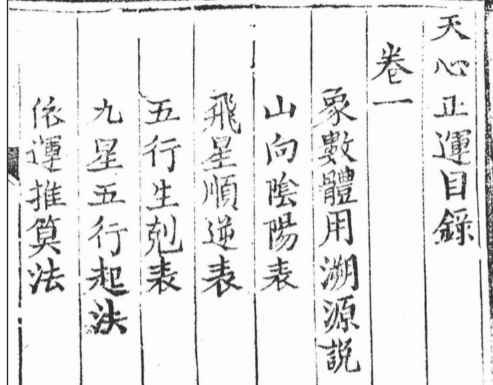 天心正運目錄
卷一
象數體用溯源説
山向陰陽表
飛星順逆表
五行生剋表
九星五行起法
依運推算法